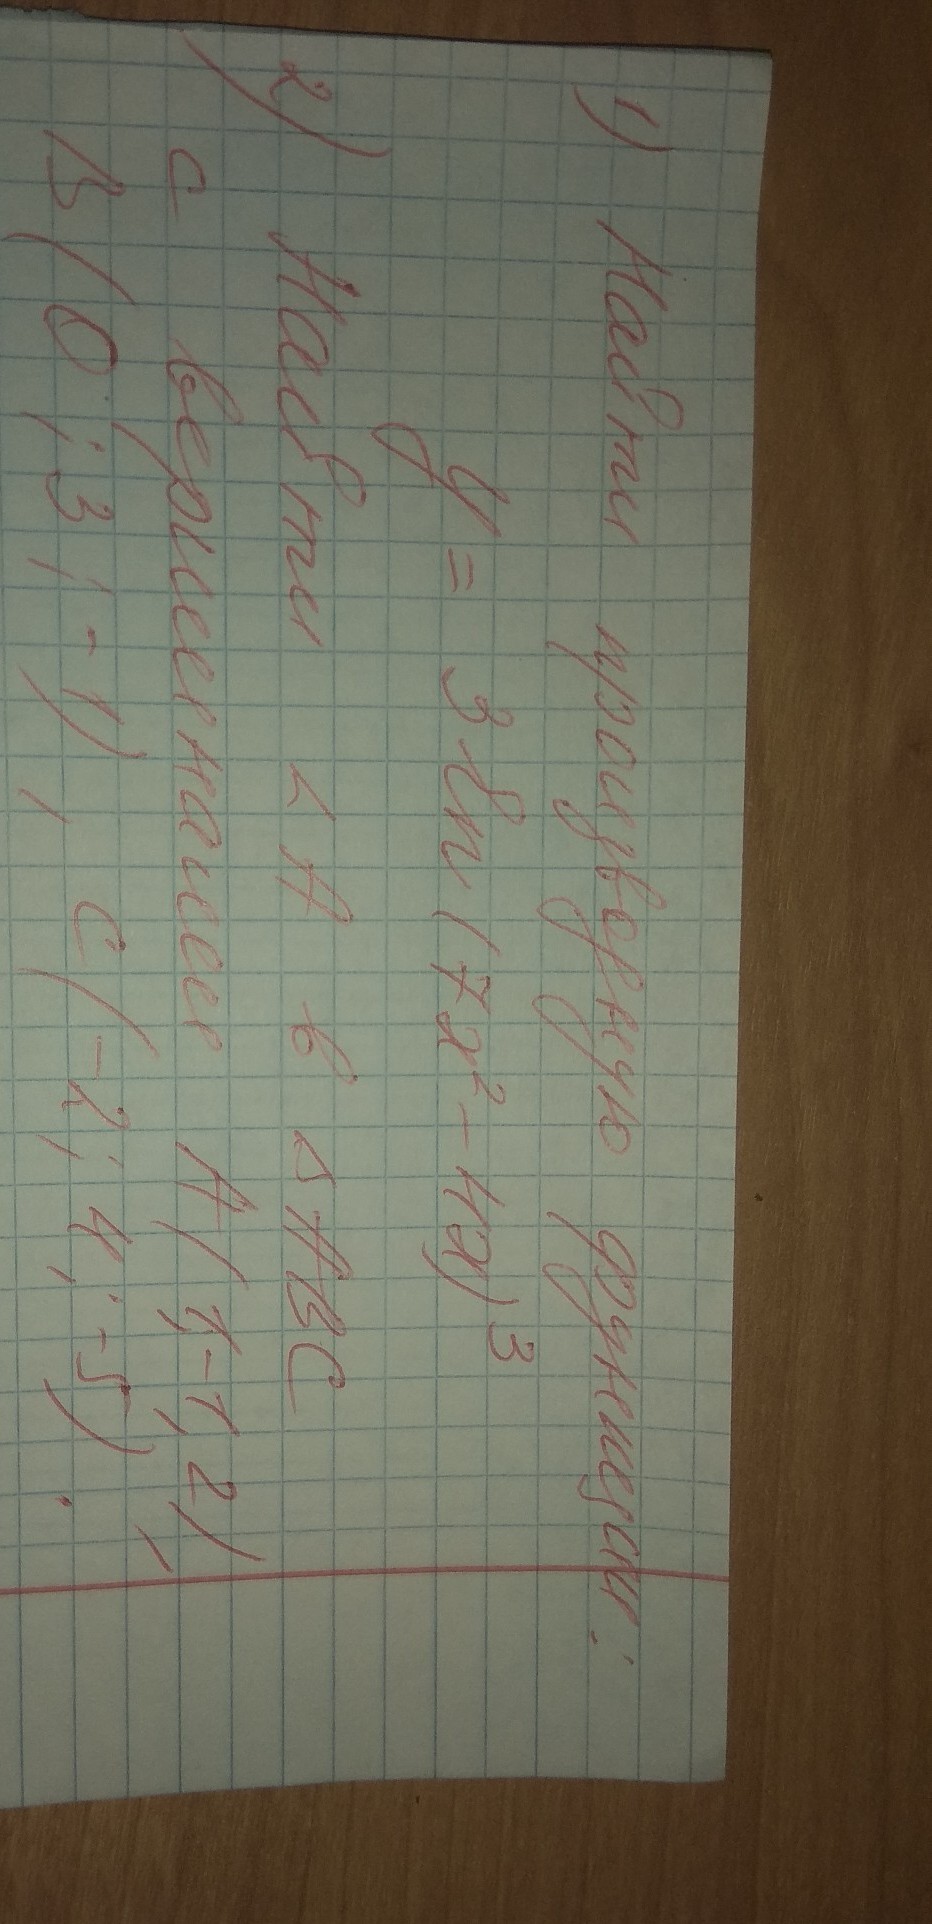 1) Найти производную функции:
y = 3 ln (7x² - 4x)³
2) Найти ∠A в ΔABC
с вершинами A(1;-1;2),
B(0;3;-1), C(-2;4;-5).